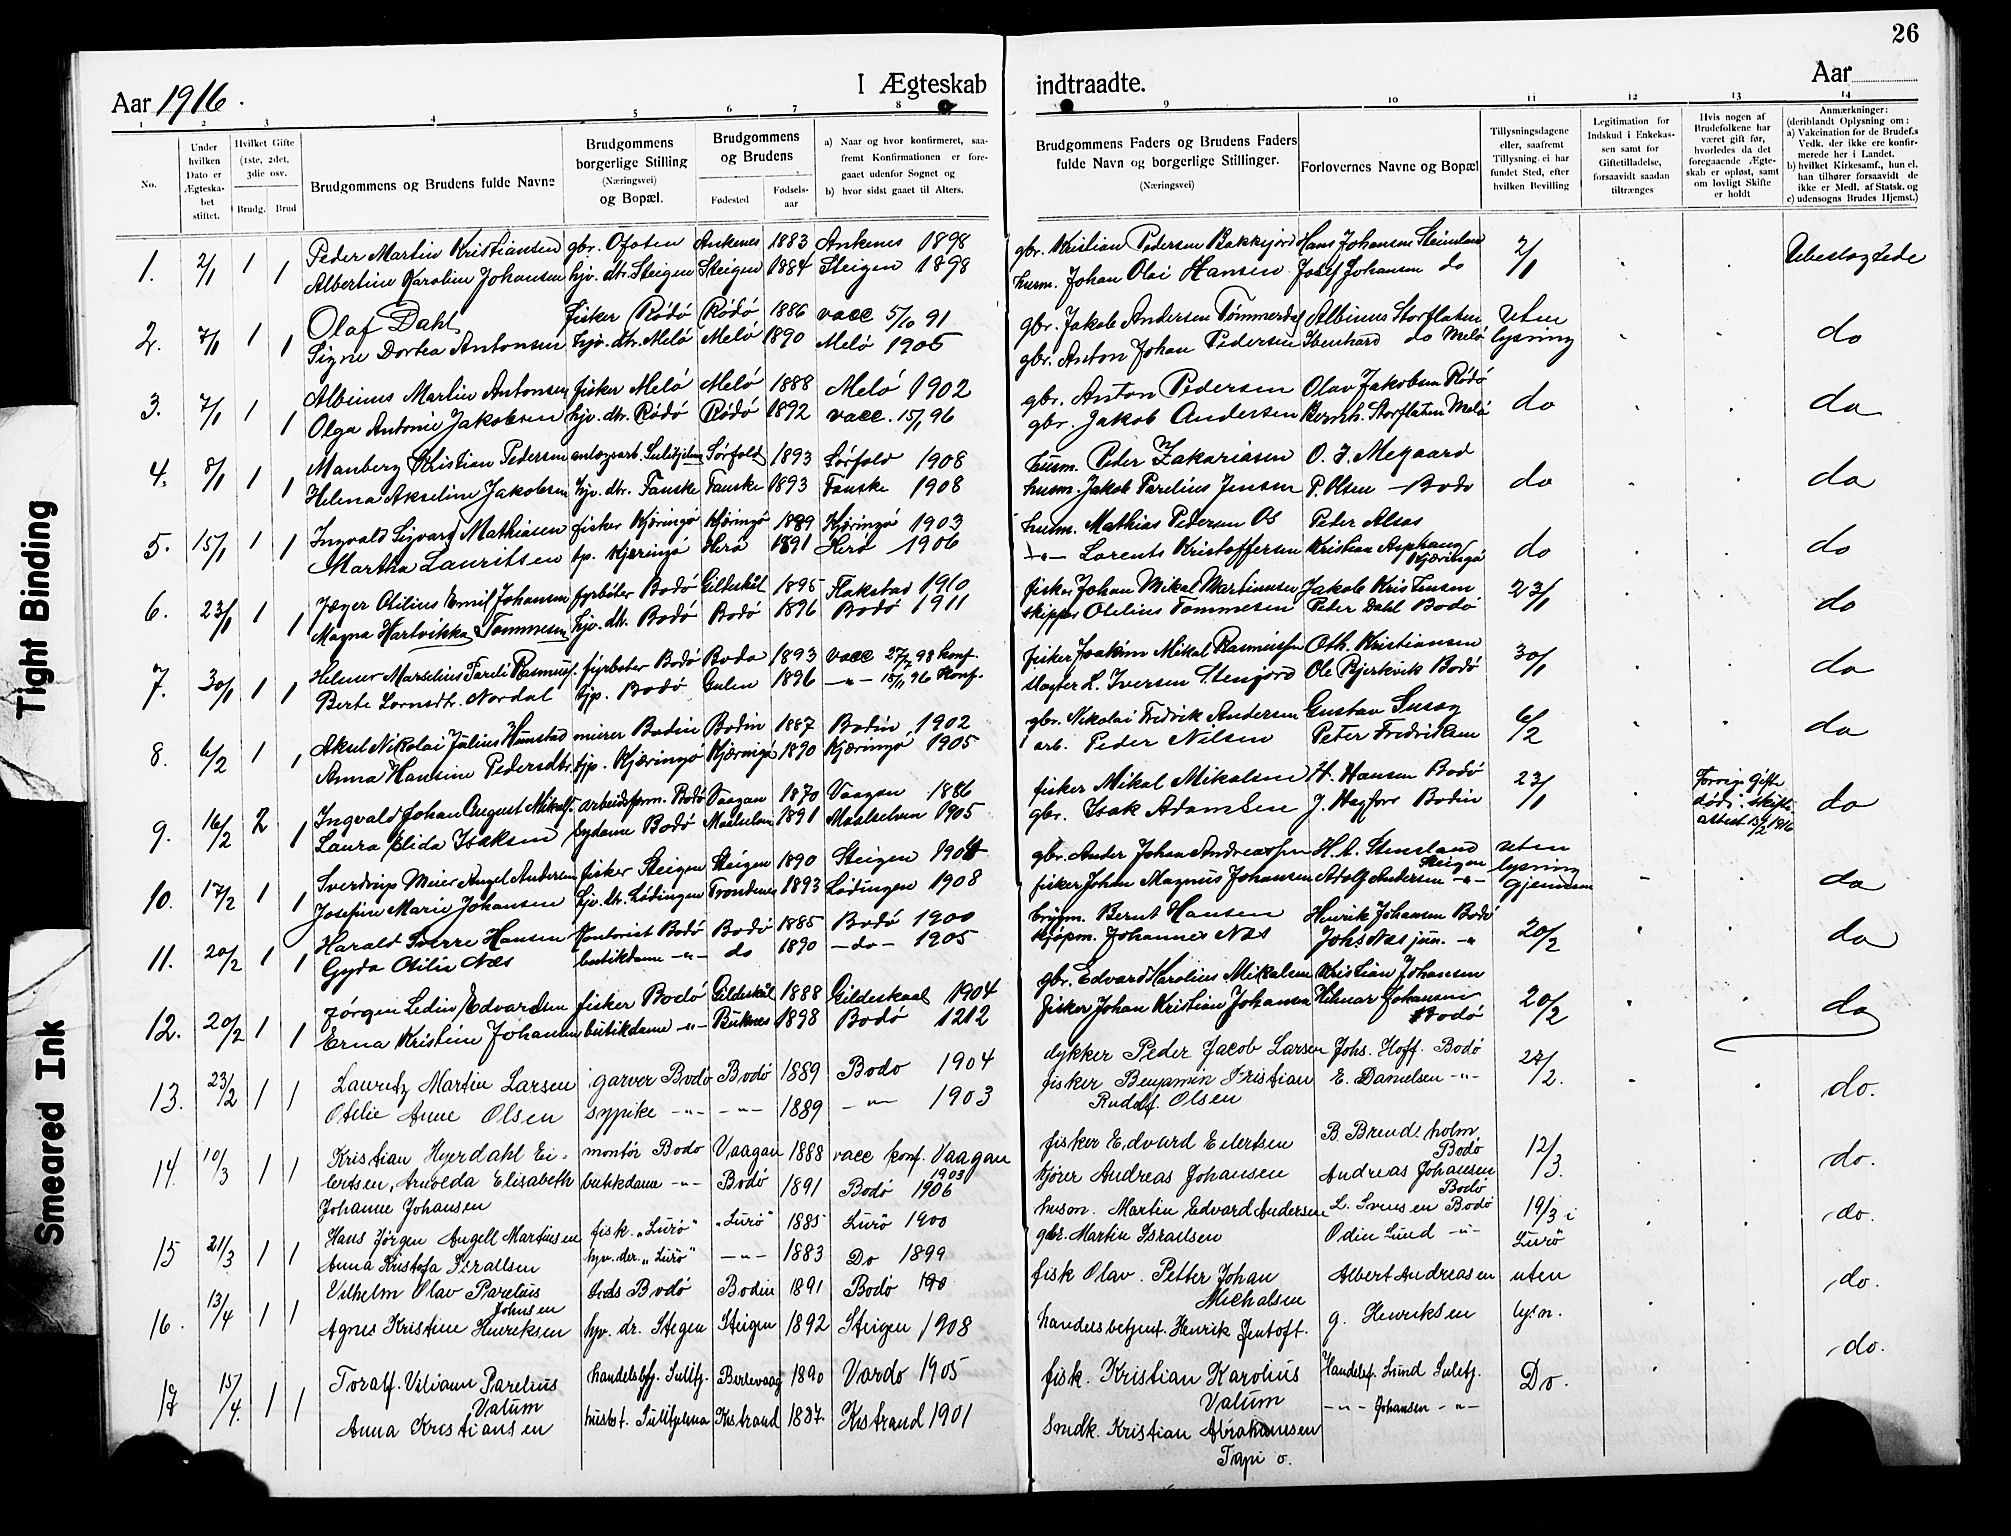 26
Aar 1916.
I Ægteskab indtraadte.
Aar
1 2 3 4 5 6 7 8 9 10 11 12 13 14
No.
Under hvilken Dato er Ægteskabet stiftet.
Hvilket Gifte (1ste, 2det, 3die osv.
Brudg. Brud
Brudgommens og Brudens fulde Navne
Brudgommens borgerlige Stilling (Næringsvei) og Bopæl.
Brudgommens og Brudens
Fødested Fødselsaar
a) Naar og hvor konfirmeret, saafremt Konfirmationen er foregaaet udenfor Sognet og
b) hvor sidst gaaet til Alters.
Brudgommens Faders og Brudens Faders fulde Navn og borgerlige Stillinger. (Næringsvei)
Forlovernes Navne og Bopæl
Tillysningsdagene eller, saafremt Tillysning ei har fundet Sted, efter hvilken Bevilling
Legitimation for Indskud i Enkekassen samt for Giftetilladelse, forsaavidt saadan tiltrænges
Hvis nogen af Brudefolkene har været gift før, hvorledes da det foregaaende Ægteskab er opløst, samt om lovligt Skifte er holdt
Anmærkninger: (deriblandt Oplysning om: a) Vakcination for de Brudef.s Vedk. der ikke ere konfirmerede her i Landet. b) hvilket Kirkesamf., hun el. han tilhører forsaavidt de ikke er Medl. af Statsk. og c) udensogns Brudes Hjemst.)
1. 2/1 1 1 Peder Martin Kristiansen gbr. Ofoten Ankenes 1883 Ankenes 1898 gbr. Kristian Pedersen Bakkejord Hans Johansen Steinland 2/1 Ubeslægtede
Albertine Karoline Johansen hjv. dtr. Steigen Steigen 1884 Steigen 1898 husm. Johan Olai Hansen Josef Johansen do
2. 7/1 1 1 Olaf Dahl fisker Rødø Rødø 1886 vacc 5/10 91 gbr. Jakob Andersen Tømmerdal Albinus Storflaten uten lysning do
Signe Dortea Antonsen hjv. dtr. Melø Melø 1890 Melø 1905 gbr. Anton Johan Pedersen do Melø
3. 7/1 1 1 Albinus Martin Antonsen fisker Melø Melø 1888 Melø 1902 gbr. Anton Pedersen Olav Jakobsen Rødø do do
Olga Antonie Jakobsen hjv. dtr. Rødø Rødø 1892 vacc. 15/1 96 gbr. Jakob Andersen Bernh. Storflaten Melø
4. 8/1 1 1 Manberg Kristian Pedersen anlægsarb. Sulitjelma Sørfold 1893 Sørfold 1908 husm. Peder Zakariasen O. J. Megaard do do
Helena Akseline Jakobsen hjv. dtr. Fauske Fauske 1893 Fauske 1908 husm. Jakob Parelius Jensen P. Olsen – Bodø
5. 15/1 1 1 Ingvald Sigvard Mathiasen fisker Kjæringø Kjæringø 1889 Kjæringø 1903 husm. Mathias Pedersen Os Peder Alsos do do
Martha Lauritsen tp. Kjæringø Herø 1891 Herø 1906 –"– Lorents Kristoffersen Kristian Asphaug Kjæringø
6. 23/1 1 1 Jæger Otilius Emil Johansen fyrbøter Bodø Gildeskål 1895 Flakstad 1910 fisker Johan Mikal Martinussen Jakob Kristensen 23/1 do
Magna Hartvikka Tommesen hjv. dtr. Bodø Bodø 1896 Bodø 1911 skipper Otelius Tommesen Peder Dahl Bodø
7. 30/1 1 1 Helmer Marselius Rasmuss. fyrbøter Bodø Bodø 1893 vacc 98 konf. fisker Joakim Mikal Rasmussen Oth. Kristiansen 30/1 do
Berte Nordal tjp. Bodø Gulen 1896 –"– 15/11 96 konf. slagter L. Iversen Ole Bjerkvik Bodø
8. 6/2 1 1 Aksel Nikolai Julius Hunstad murer Bodin Bodin 1887 Bodin 1902 gbr. Nikolai Fredrik Andersen Gustav 6/2 do
Anna Hansine Pedersdtr. tjp. Kjæringø Kjæringø 1890 Kjæringø 1905 arb. Peder Nilsen Peter Fredriksen
9. 16/2 2 1 Ingvald Johan August Mikals. arbeidsform. Bodø Vaagan 1870 Vaagan 1886 fisker Mikal Mikalsen H. Hansen Bodø 23/1 Forrige Gifte død: skifte attest 15/2 1916 do
Laura Elida Isaksen sydame Bodø Maalselven 1891 Maalselven 1905 gbr. Isak Adamsen J. Hagfors Bodin
10. 17/2 1 1 Sverdrup Meier Angel Andersen fisker Steigen Steigen 1890 Steigen 1904 gbr. Ander Johan Andreassen H. A. Stensland Steigen uten lysning Gjennem do
Josefine Marie Johansen hjv. dtr. Lødingen Trondenes 1893 Lødingen 1908 fisker Johan Magnus Johansen Adolf Andersen –"–
11. 20/2 1 1 Harald Sverre Hansen Kontorist Bodø Bodø 1885 Bodø 1900 brygm. Bernt Hansen Henrik Johansen Bodø 20/2 do
Gyda Otilie Næs butikdame –"– do 1890 –do– 1905 kjøpm. Johannes Næs Johs Næs jun. –"
12. 20/2 1 1 Jørgen Ledin Edvardsen fisker Bodø Gildeskål 1888 Gildeskaal 1904 gbr. Edvard Karolius Mikalsen Kristian Johansen 20/2 do
Erna Kristine Johansen butikdame –"– Buknes 1898 Bodø 1212 fisker Johan Kristian Johansen Hilmar Johansen Bodø
13. 23/2 1 1 Lauritz Martin Larsen garver Bodø Bodø 1889 Bodø 1904 dykker Peder Jacob Larsen Johs. Hoff. Bodø 27/2. do.
Otelie Anne Olsen sypike –"– –"– 1889 –"– 1903 fisker Benjamin Kristian Rudolf. Olsen E. Danielsen –"–
14. 10/3 1 1 Kristian Heyerdahl Ei- montør Bodø Vaagan 1888 vacc konf. Vaagan 1903 fisker Edvard Eilertsen B. Brendeholm Bodø 12/3. do.
lertsen, Arnolda Elisabeth butikdame –"– Bodø 1891 Bodø 1906 kjører Andreas Johansen Andreas Johansen Bodø
Johanne Johansen
15 21/3 1 1 Hans Jørgen Angell Martinsen fisk. "Lurø" "Lurø" 1885 Lurø 1900 husm. Martin Edvard Andersen L. Svensen Bodø 19/3 i Lurø do.
Anna Kristofa Israelsen hjv. der. "Lurø" –"– 1883 Do 1899 gbr. Martin Israelsen Odin Lund –"–
16. 13/4 1 1 Vilhelm Olav Parelius Johnsen Bodø Bodin 1891 Bodø 190 fisk Olav. Petter Johan Michalsen Albert Andreasen uten lysn. do.
Agnes Kristine Henriksen hjv. dr. Stegen Steigen 1892 Steigen 1908 handelsbetjent. Henrik Jentoft. g. Henriksen
17 15/4. 1 1 Toralf. Viliam Parelius Valum handelsbtj. Sulitj. Berlevaag 1890 Vardø 1905 fisk. Kristian Karolius Valum Handelsf. Lund Sulitj. Do. do.
Anna Kristiansen husbst. Sulitjelma Kistrand 1887. Kistrand 1901 Smdk. Kristian Abrahamsen –"– Johansen –"–
Tight Binding
Smeared Ink